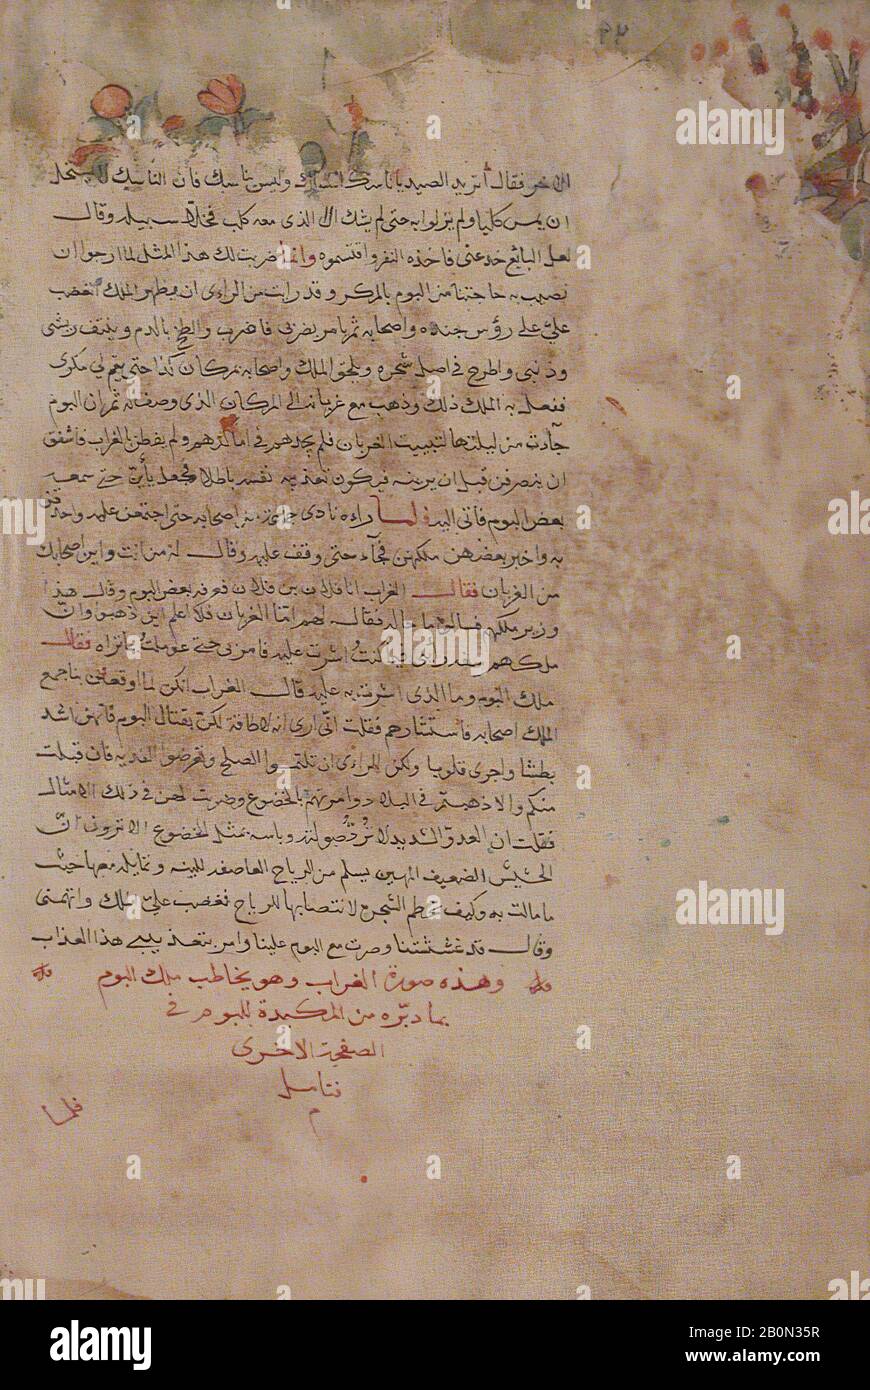 الآخر فقال أتريد الصيد يا ناسك أشار وليس بناسك فان الناسك لا يستحل
ان يمس كلبا ولم يزلوا به حتى لم يشك ان الذى معه كلب فخلا سبيله وقال
لعل البائع خدعنى فاخذه النفر واقتسموه وانما ضربت لك هذا المثل لما ارجوا ان
نصيب به حاجتنا من البوم بالمكر وقد رايت من الراى ان يظهر الملك الغضب
علىّ على رؤس جنده واصحابه ثم يامر بضربى فاضرب والطخ بالدم وينتف ريشى
وذنبى واطرح فى اصل شجره ويلحق الملك واصحابه بمكان كذا حتى يقم لى مكرى
ففعل به الملك ذلك وذهب مع غربانه الى المكان الذى وصف له ثم ان البوم
جآءت من ليلتها لتبييت الغربان فلم يجدهم فى اماكنهم ولم يفطن بالغراب فاشفق
ان ينصرفن قبل ان يرينه فيكون تعذيبه نفسه باطلا فجعل يأن حتى سمعه
بعض البوم فاتى اليه فلما راءه نادى اصحابه حتى اجتمعن عليه واحدقن
به واخبر بعضهن ملكهن فجآء حتى وقف عليه وقال له من انت واين اصحابك
من الغربان فقال الغراب انا فلان بن فلان فعرفه بعض البوم وقال هذا
وزير ملكهم فسالوه ما حاله فقال لهم اما الغربان فلا اعلم اين ذهبوا وان
ملكهم كنتُ اشرت عليه فامر بى حتى عوملتُ بما تراه فقال
ملك البوم وما الذى اشرت به عليه قال الغراب انكن لما اوقعتن بنا جمع
الملك اصحابه فاستشارهم فقلت انّى ارى انه لا طاقة لكن بقتال البوم فانهن اشد
بطشا واجرى قلوبا ولكن الراى ان تلتمسوا الصلح وتعرضوا الفديه فان قبلت
منكم والا ذهبتم فى البلاد وامرتهم بالخضوع وضربت لهن فى ذلك الامثال
فقلت ان العدو الشديد لا تُردّ صولته وباسه بمثل الخضوع الا ترون انّ
الحشيش الضعيف المهين يسلم من الرياح العاصفه للينه وتمايله معها حيث
ما مالت به وكيف تحطم الشجره لانتصابها للرياح فغضب علىّ الملك واتهمنى
وقال قد غششتنا وصرت مع البوم علينا وامر بتعذيبى هذا العذاب
وهذه صورة الغراب وهو يخاطب ملك البوم
بما دبّره من المكيدة للبوم فى
الصفحة الاخرى
تتامل
م
فلما
alamy
Image ID: 2B0N35R
www.alamy.com